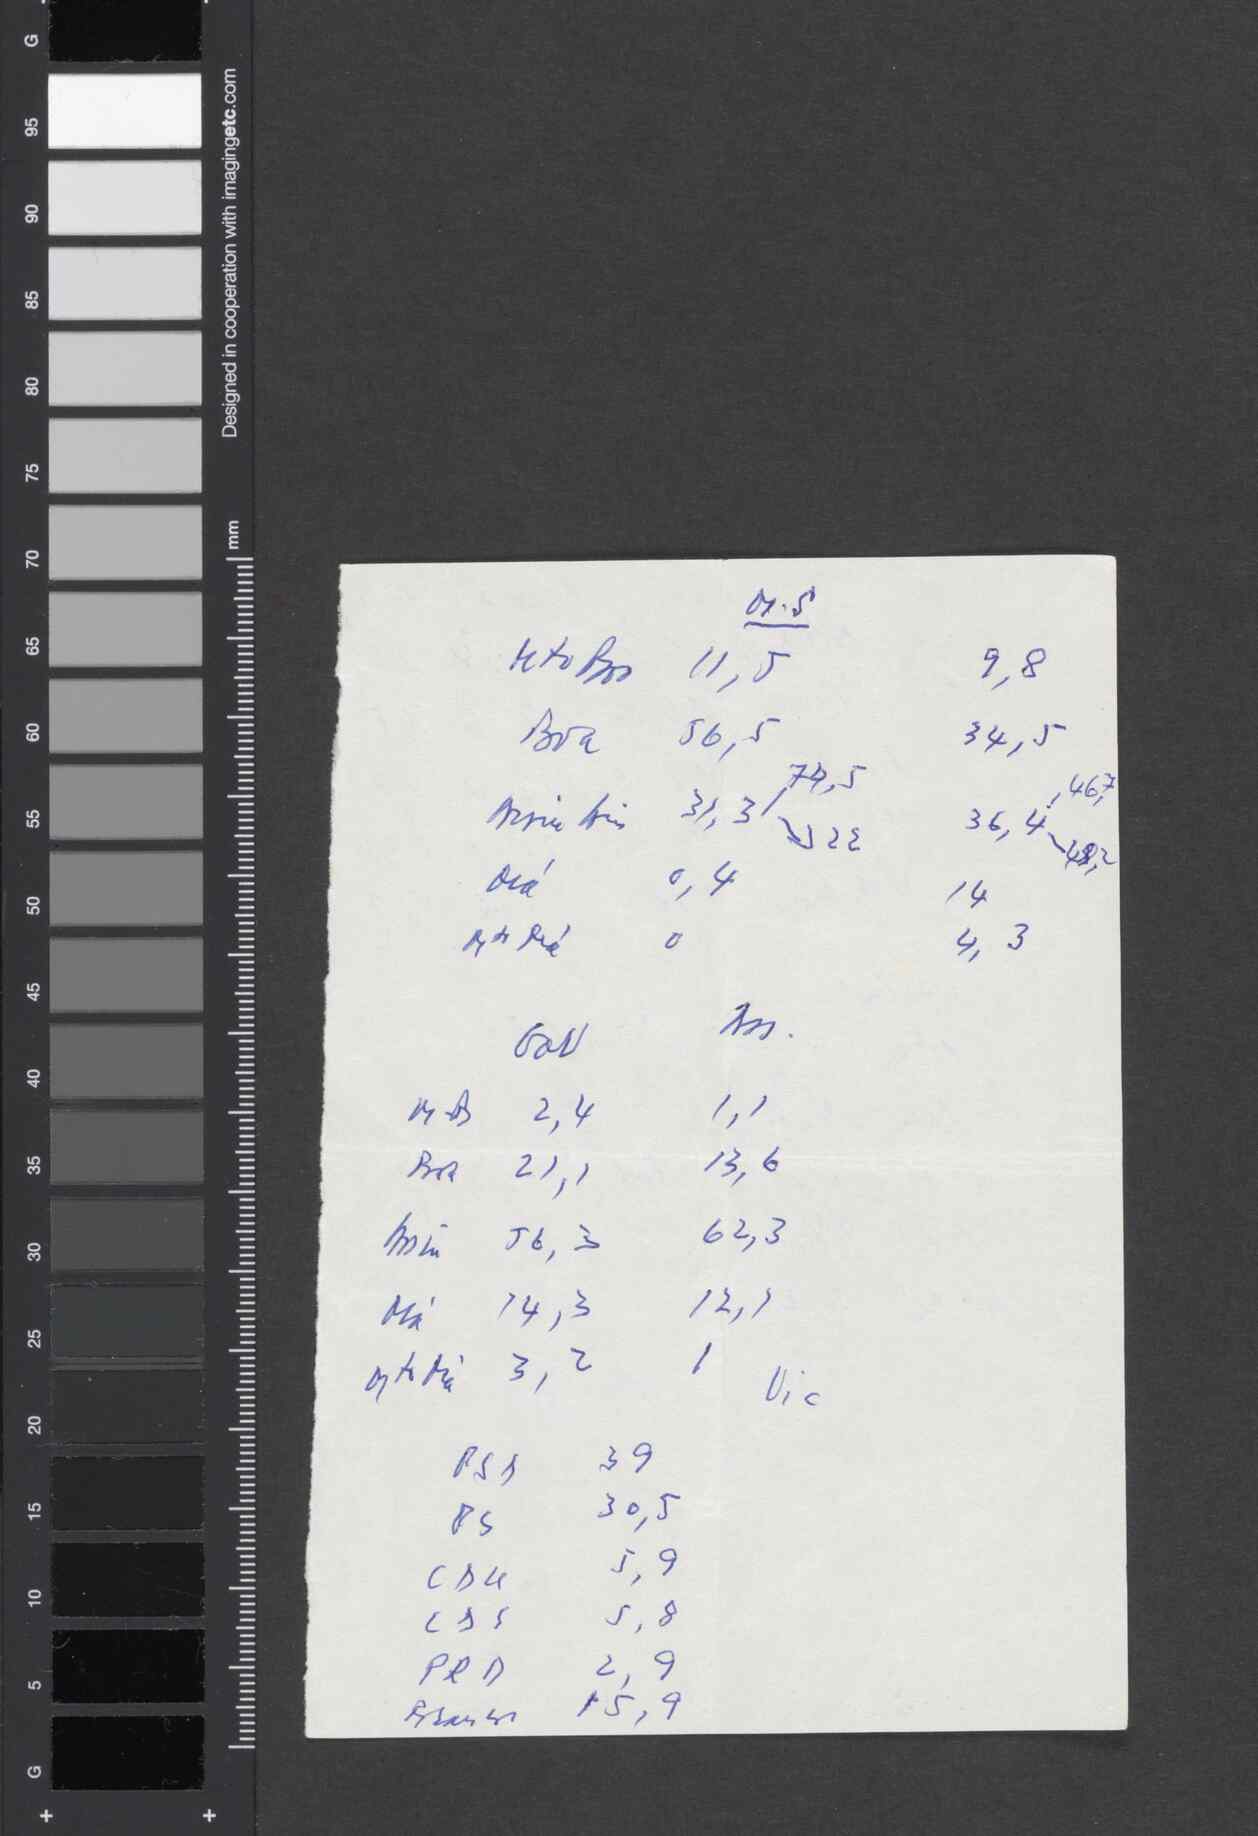 G
95
90
85
80
75
70
65
60
55
50
45
40
35
30
25
20
15
10
5
G
Designed in cooperation with imagingetc.com
mm
M.S
Mto Boa 11,5 9,8
Boa 56,5 34,5
74,5 46,7
31,3 36,4
22
Má 0,4 14
Mto Má 0 4,3
Gov Ass.
MB 2,4 1,1
Boa 21,1 13,6
Assim 56,3 62,3
Má 14,3 12,1
Mto Má 3,2 1
Vic
PSD 39
PS 30,5
CDU 5,9
CDS 5,8
PRD 2,9
Brancos 15,9